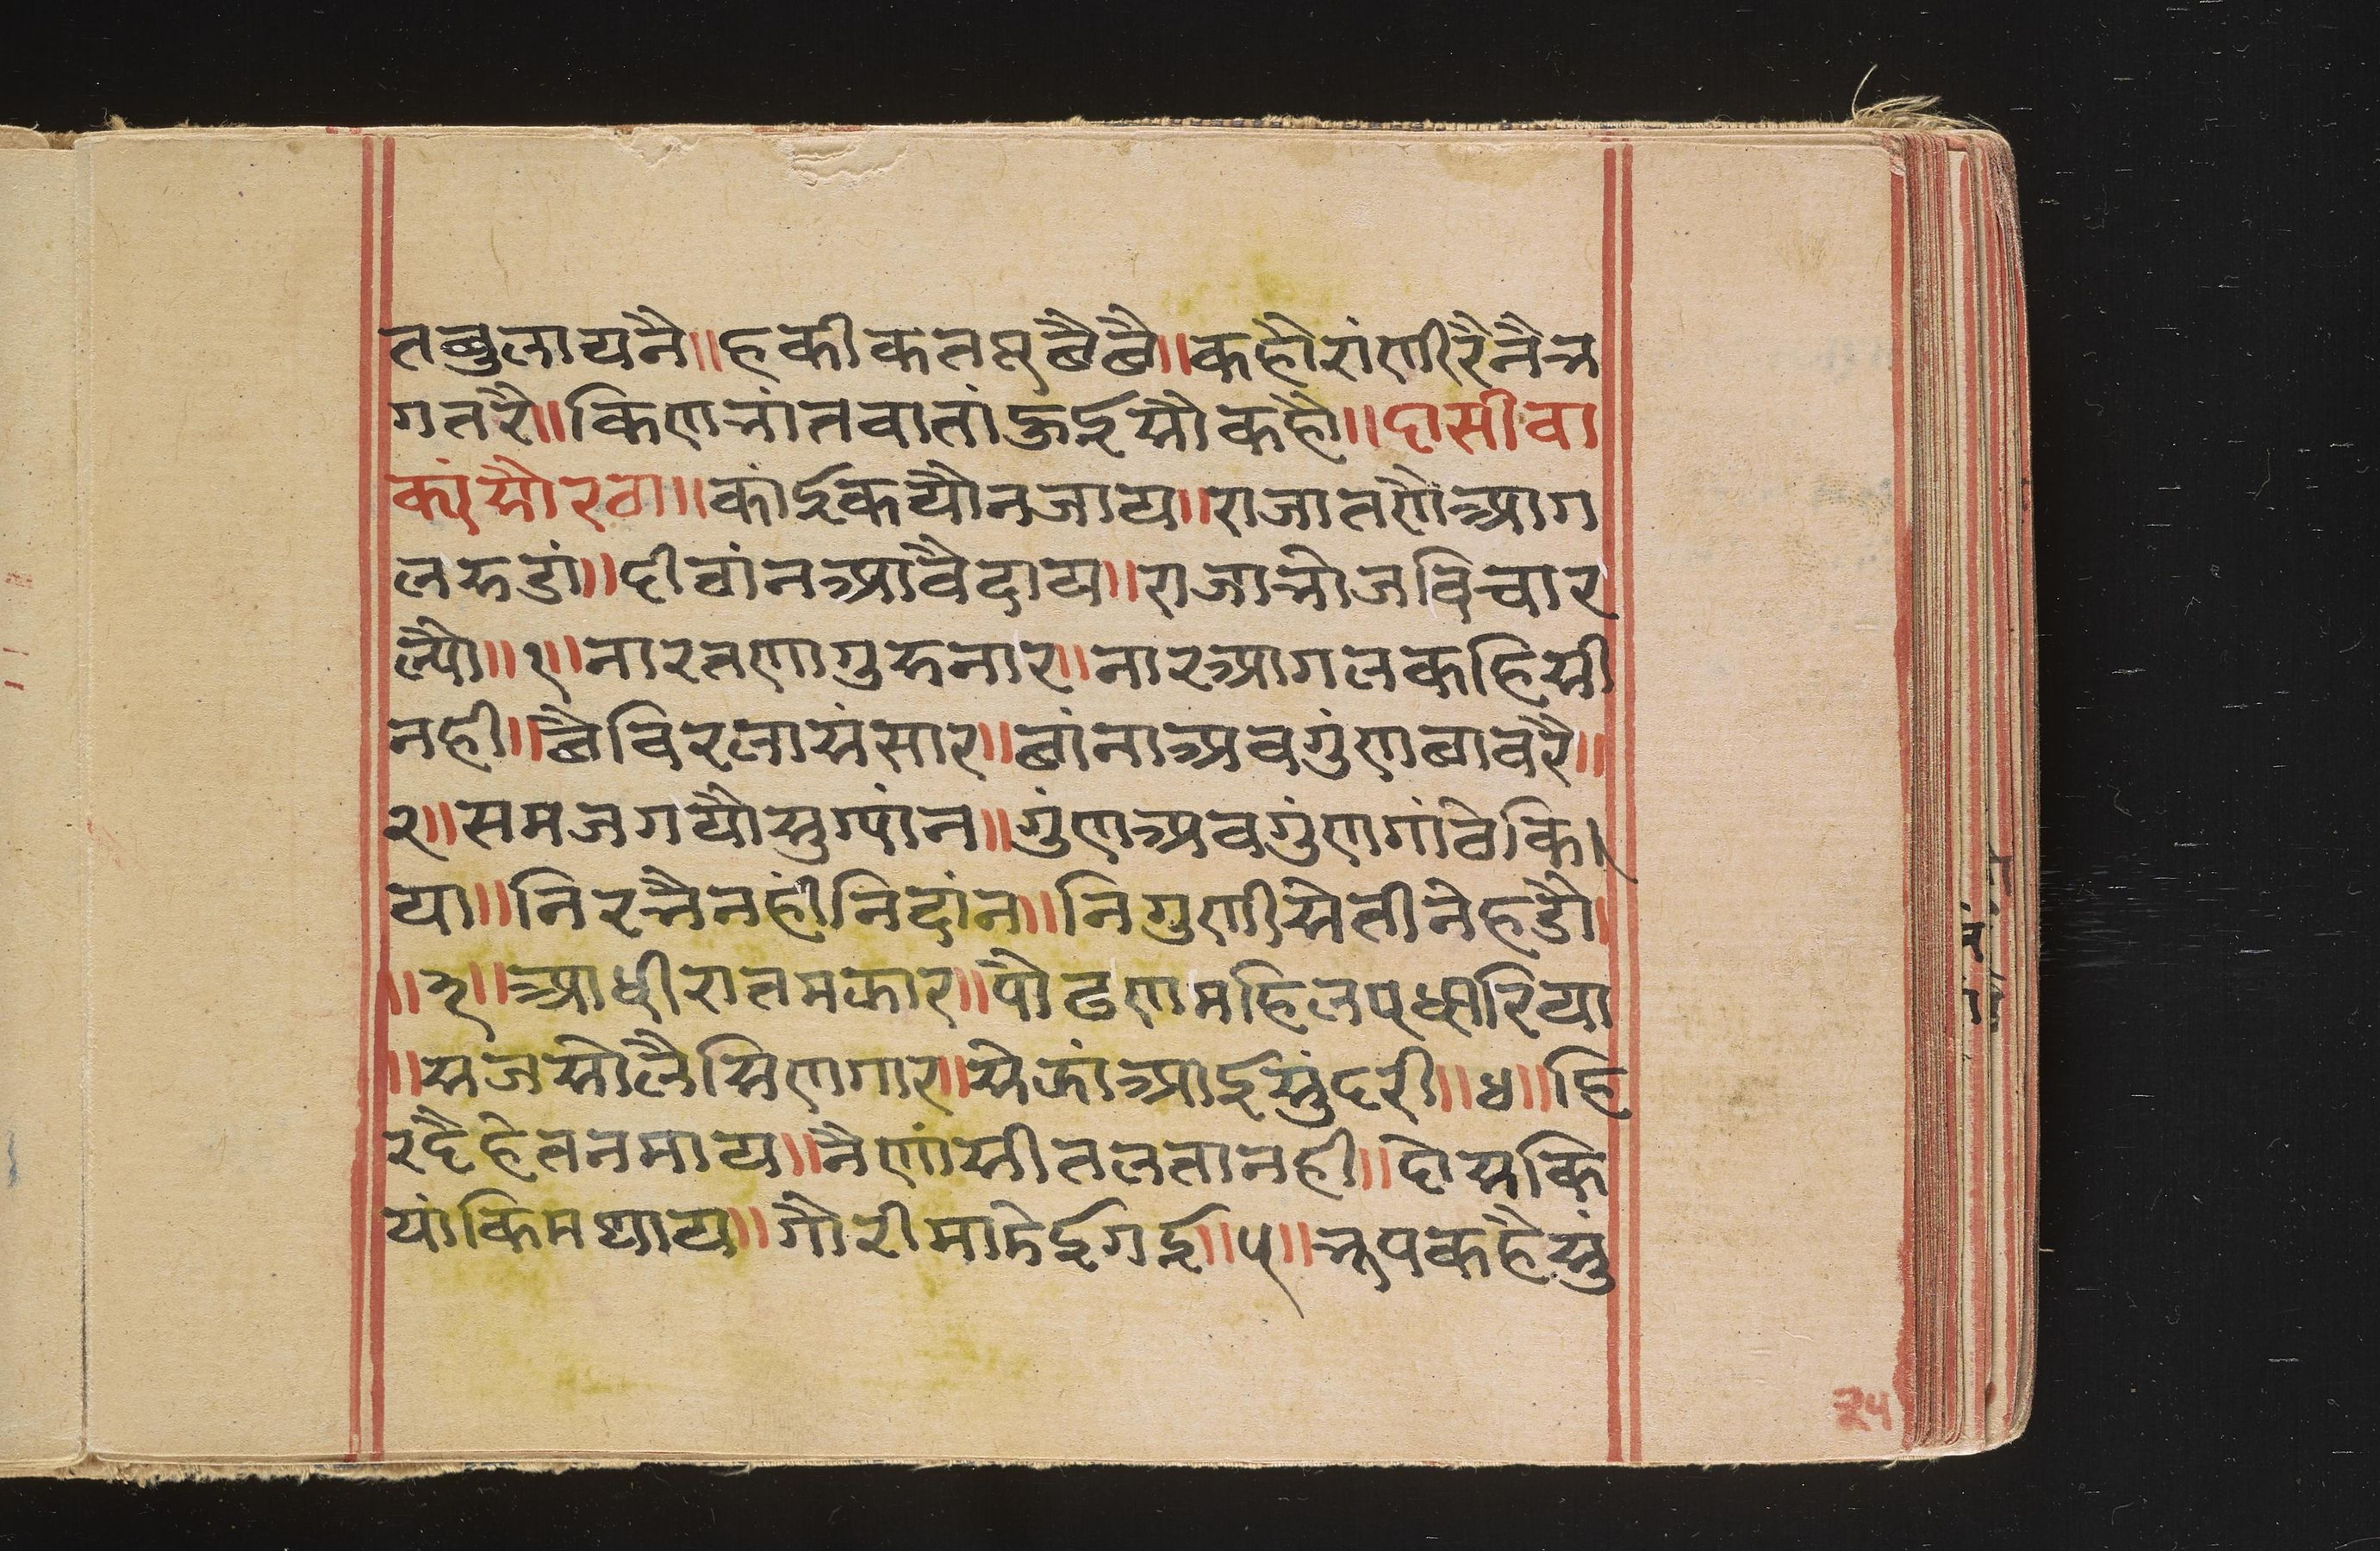 तबुलायनै॥हकीकतपूछैछै॥कहौरांणीरैनैभ
गतरै॥किणभांतवातांहुईसौकहौ॥दासीवा
कांसौरठा॥कांईकयौनजाय॥राजातणैआग
लरुडां॥दीवांनआवैदाय॥राजाभोजविचार
ल्यौ॥१॥नारतणागुरुनार॥नारआगलकहिसी
नही॥छैविरलासंसार॥छांनाअवगुंणछावरै॥
२॥समजगयौसुग्यांन॥गुंणअवगुंणगांठेकि।
या॥निरभैनहींनिदांन॥निगुणीसेतीनेहडौ।
॥३॥आधीरातमझार॥पौढणमहिलपधारिया
॥सजसोलैसिणगार॥सेझांआईसुंदरी॥४॥हि
रदैहेतनमाय॥नैणांसीतलतानही॥दोसकि
यांकिमथाय॥गौरीमाठेईगई॥५॥भूपकहैसुं
२५